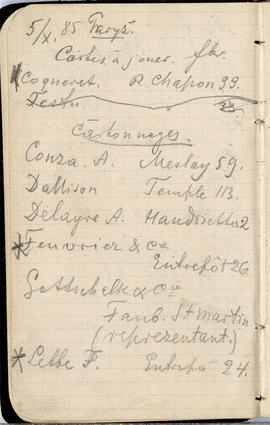 5/X. 85 Paryż.
Cartes à jouer. fbr.
Coqueret. R. Chapon 33.
Testu
Cartonnages.
Conza. A. Meslay 59.
Dallison Temple 113.
Delayre A. 2
Feuvrier & Cie
Entrepôt 26
Gottschelk & Cie
Faub. St Martin
(reprezentant.)
Lebbe F. Entrepô 24.